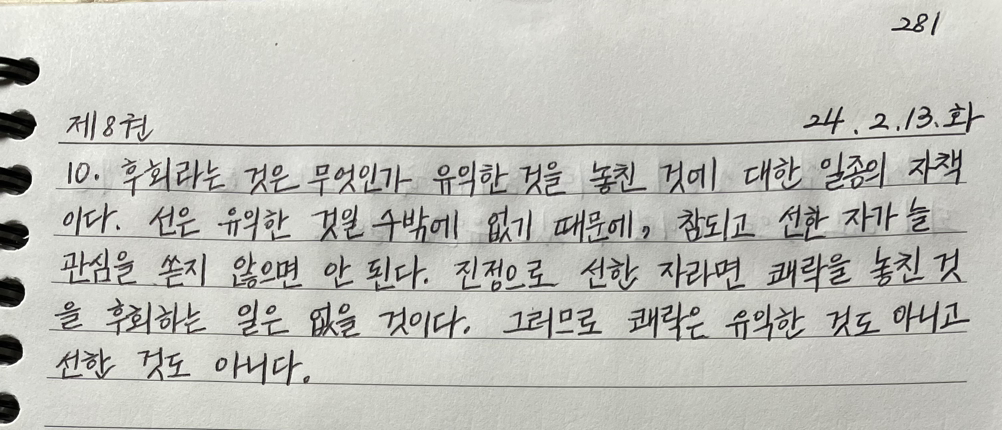 281
제8권 24.2.13.화
10. 후회라는 것은 무엇인가 유익한 것을 놓친 것에 대한 일종의 자책
이다. 선은 유익한 것일 수밖에 없기 때문에, 참되고 선한 자가 늘
관심을 쏟지 않으면 안 된다. 진정으로 선한 자라면 쾌락을 놓친 것
을 후회하는 일은 없을 것이다. 그러므로 쾌락은 유익한 것도 아니고
선한 것도 아니다.